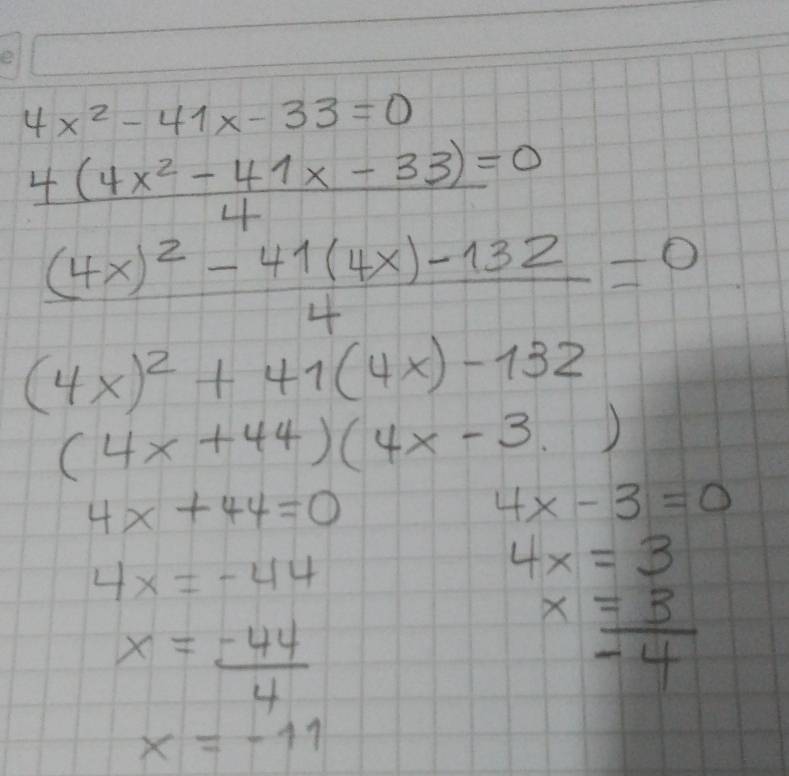 e
4x² - 41x - 33 = 0
4(4x² - 41x - 33) = 0
4
(4x)² - 41(4x) - 132 = 0
4
(4x)² + 41(4x) - 132
(4x + 44)(4x - 3. )
4x + 44 = 0 4x - 3 = 0
4x = -44 4x = 3
x = -44 x = 3
4 - 4
x = -11